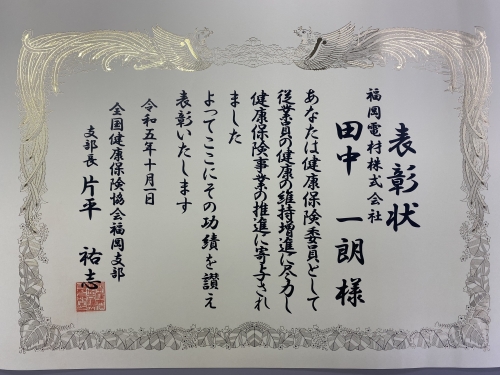 表彰状
福岡電材株式会社
田中 一朗 様
あなたは健康保険委員として
従業員の健康の維持増進に尽力し
健康保険事業の推進に寄与され
ました
よってここにその功績を讃え
表彰いたします
令和五年十月一日
全国健康保険協会福岡支部
支部長 片平 祐志